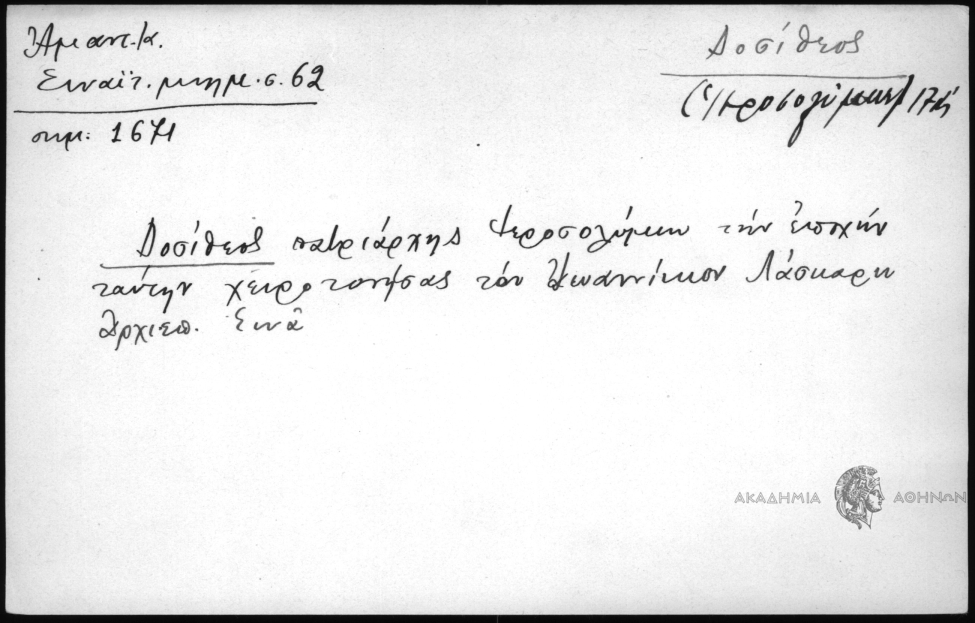 Ἄμαντ. Κ.
Σιναϊτ. μνημ. σ. 62
σημ: 1671
Δοσίθεος
(Ἱεροσολύμων) 17ος
Δοσίθεος πατριάρχης Ἱεροσολύμων τὴν ἐποχὴν
ταύτην χειροτονήσας τὸν Ἰωαννίκιον Λάσκαριν
Ἀρχιεπ. Σινᾶ
ΑΚΑΔΗΜΙΑ ΑΘΗΝΩΝ